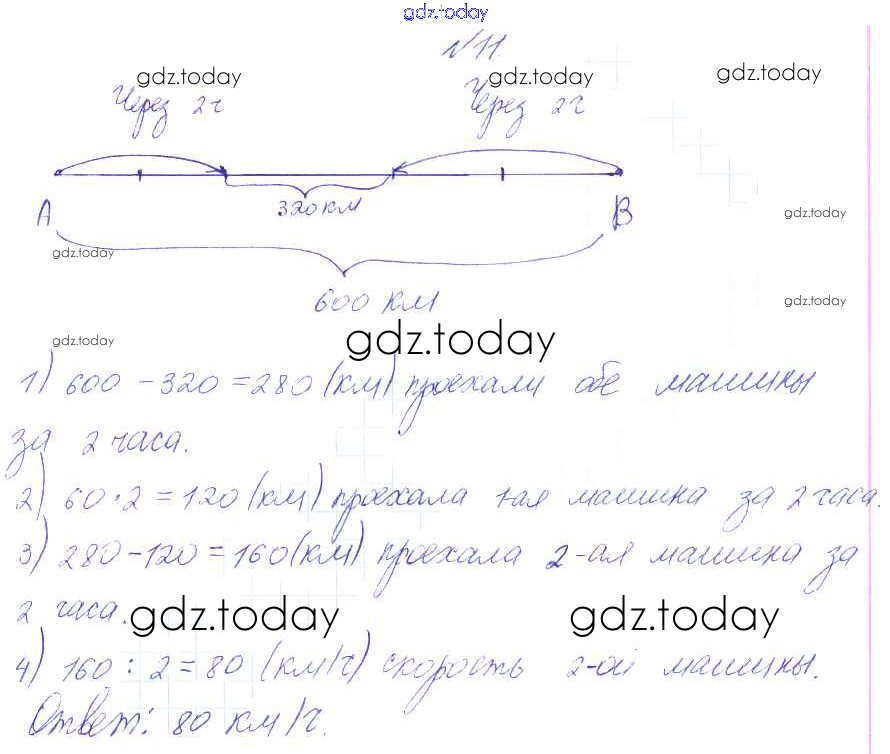 gdz.today
№11.
gdz.today gdz.today gdz.today
Через 2ч Через 2ч
320 км
А В
gdz.today
gdz.today
600 км
gdz.today
gdz.today
gdz.today
1) 600 - 320 = 280 (км) проехали обе машины
за 2 часа.
2) 60 · 2 = 120 (км) проехала 1-ая машина за 2 часа.
3) 280 - 120 = 160 (км) проехала 2-ая машина за
2 часа.
gdz.today gdz.today
4) 160 : 2 = 80 (км/ч) скорость 2-ой машины.
Ответ: 80 км/ч.